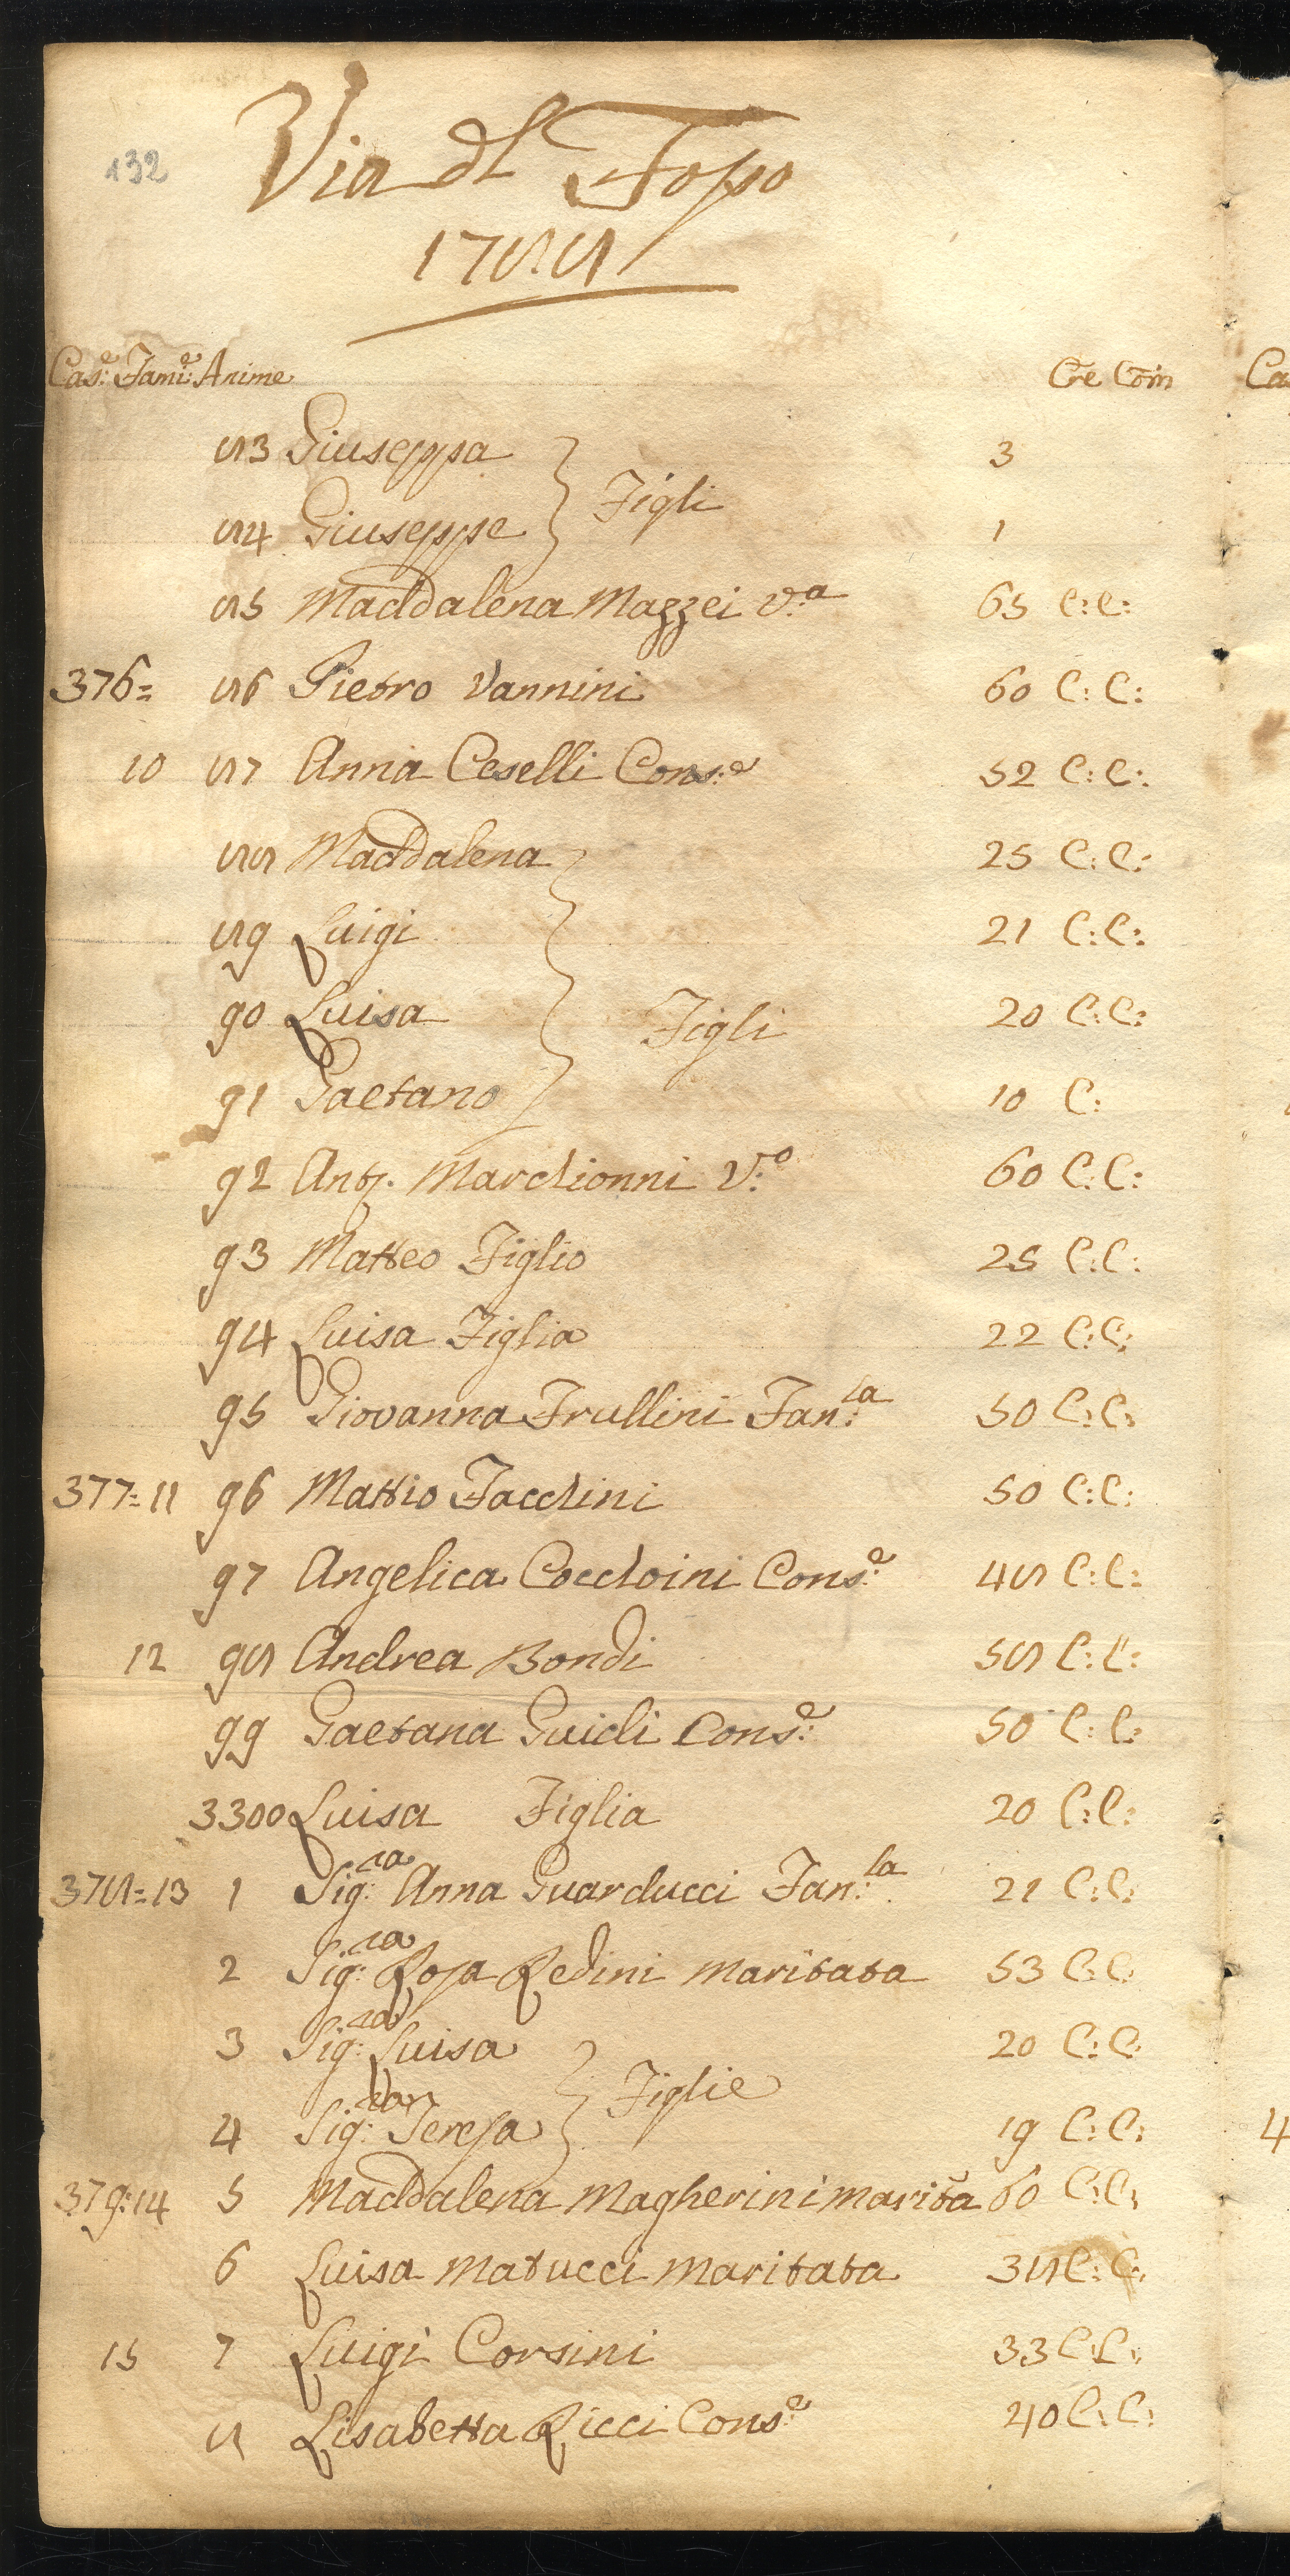 132
Via del Fosso
1788
Cas:e Fam:e Anime Cre Com Ca
83 Giuseppa 3
Figli
84 Giuseppe 1
85 Maddalena Mazzei v:a 65 C:C:
376= 86 Pietro Vannini 60 C:C:
10 87 Anna Ceselli Cons:e 52 C:C:
88 Maddalena 25 C:C:
89 Luigi 21 C:C:
90 Luisa Figli 20 C:C:
91 Gaetano 10 C:
92 Ant. Marchionni V:o 60 C:C:
93 Matteo Figlio 25 C:C:
94 Luisa Figlia 22 C:C:
95 Giovanna Frullini Fan:la 50 C:C:
377=11 96 Mattio Facchini 50 C:C:
97 Angelica Cocchini Cons:e 48 C:C:
12 98 Andrea Bondi 58 C:C:
99 Gaetana Guidi Cons:e 50 C:C:
3300 Luisa Figlia 20 C:C:
378=13 1 Sig:ra Anna Guarducci Fan:la 21 C:C:
2 Sig:ra Rosa Redini Maritata 53 C:C
3 Sig:ra Luisa 20 C:C:
Figlie
4 Sig:ra Teresa 19 C:C: 4
379:14 5 Maddalena Magherini Marita 60 C:C:
6 Luisa Matucci Maritata 38 C:C:
15 7 Luigi Corsini 33 C:C:
8 Lisabetta Ricci Cons:e 40 C:C: